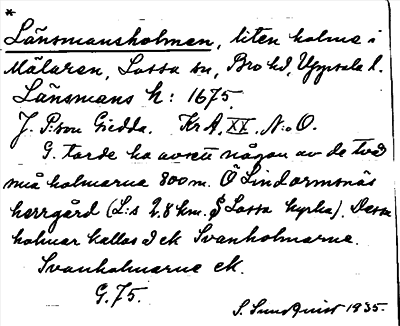 *
Länsmansholmen, liten holme i
Mälaren, Lossa sn, Bro hd, Uppsala l.
Länsmans h: 1675.
J. P:son Giedda. KrA, XX, N:o O.
G. torde ha avsett någon av de två
små holmarna 800 m. Ö Lindormsnäs
herrgård (L:s 2,8 km. S Lossa kyrka). Dessa
holmar kallas d ek Svanholmarne.
Svanholmarne ek.
G. 75.
S. Sundquist 1935.